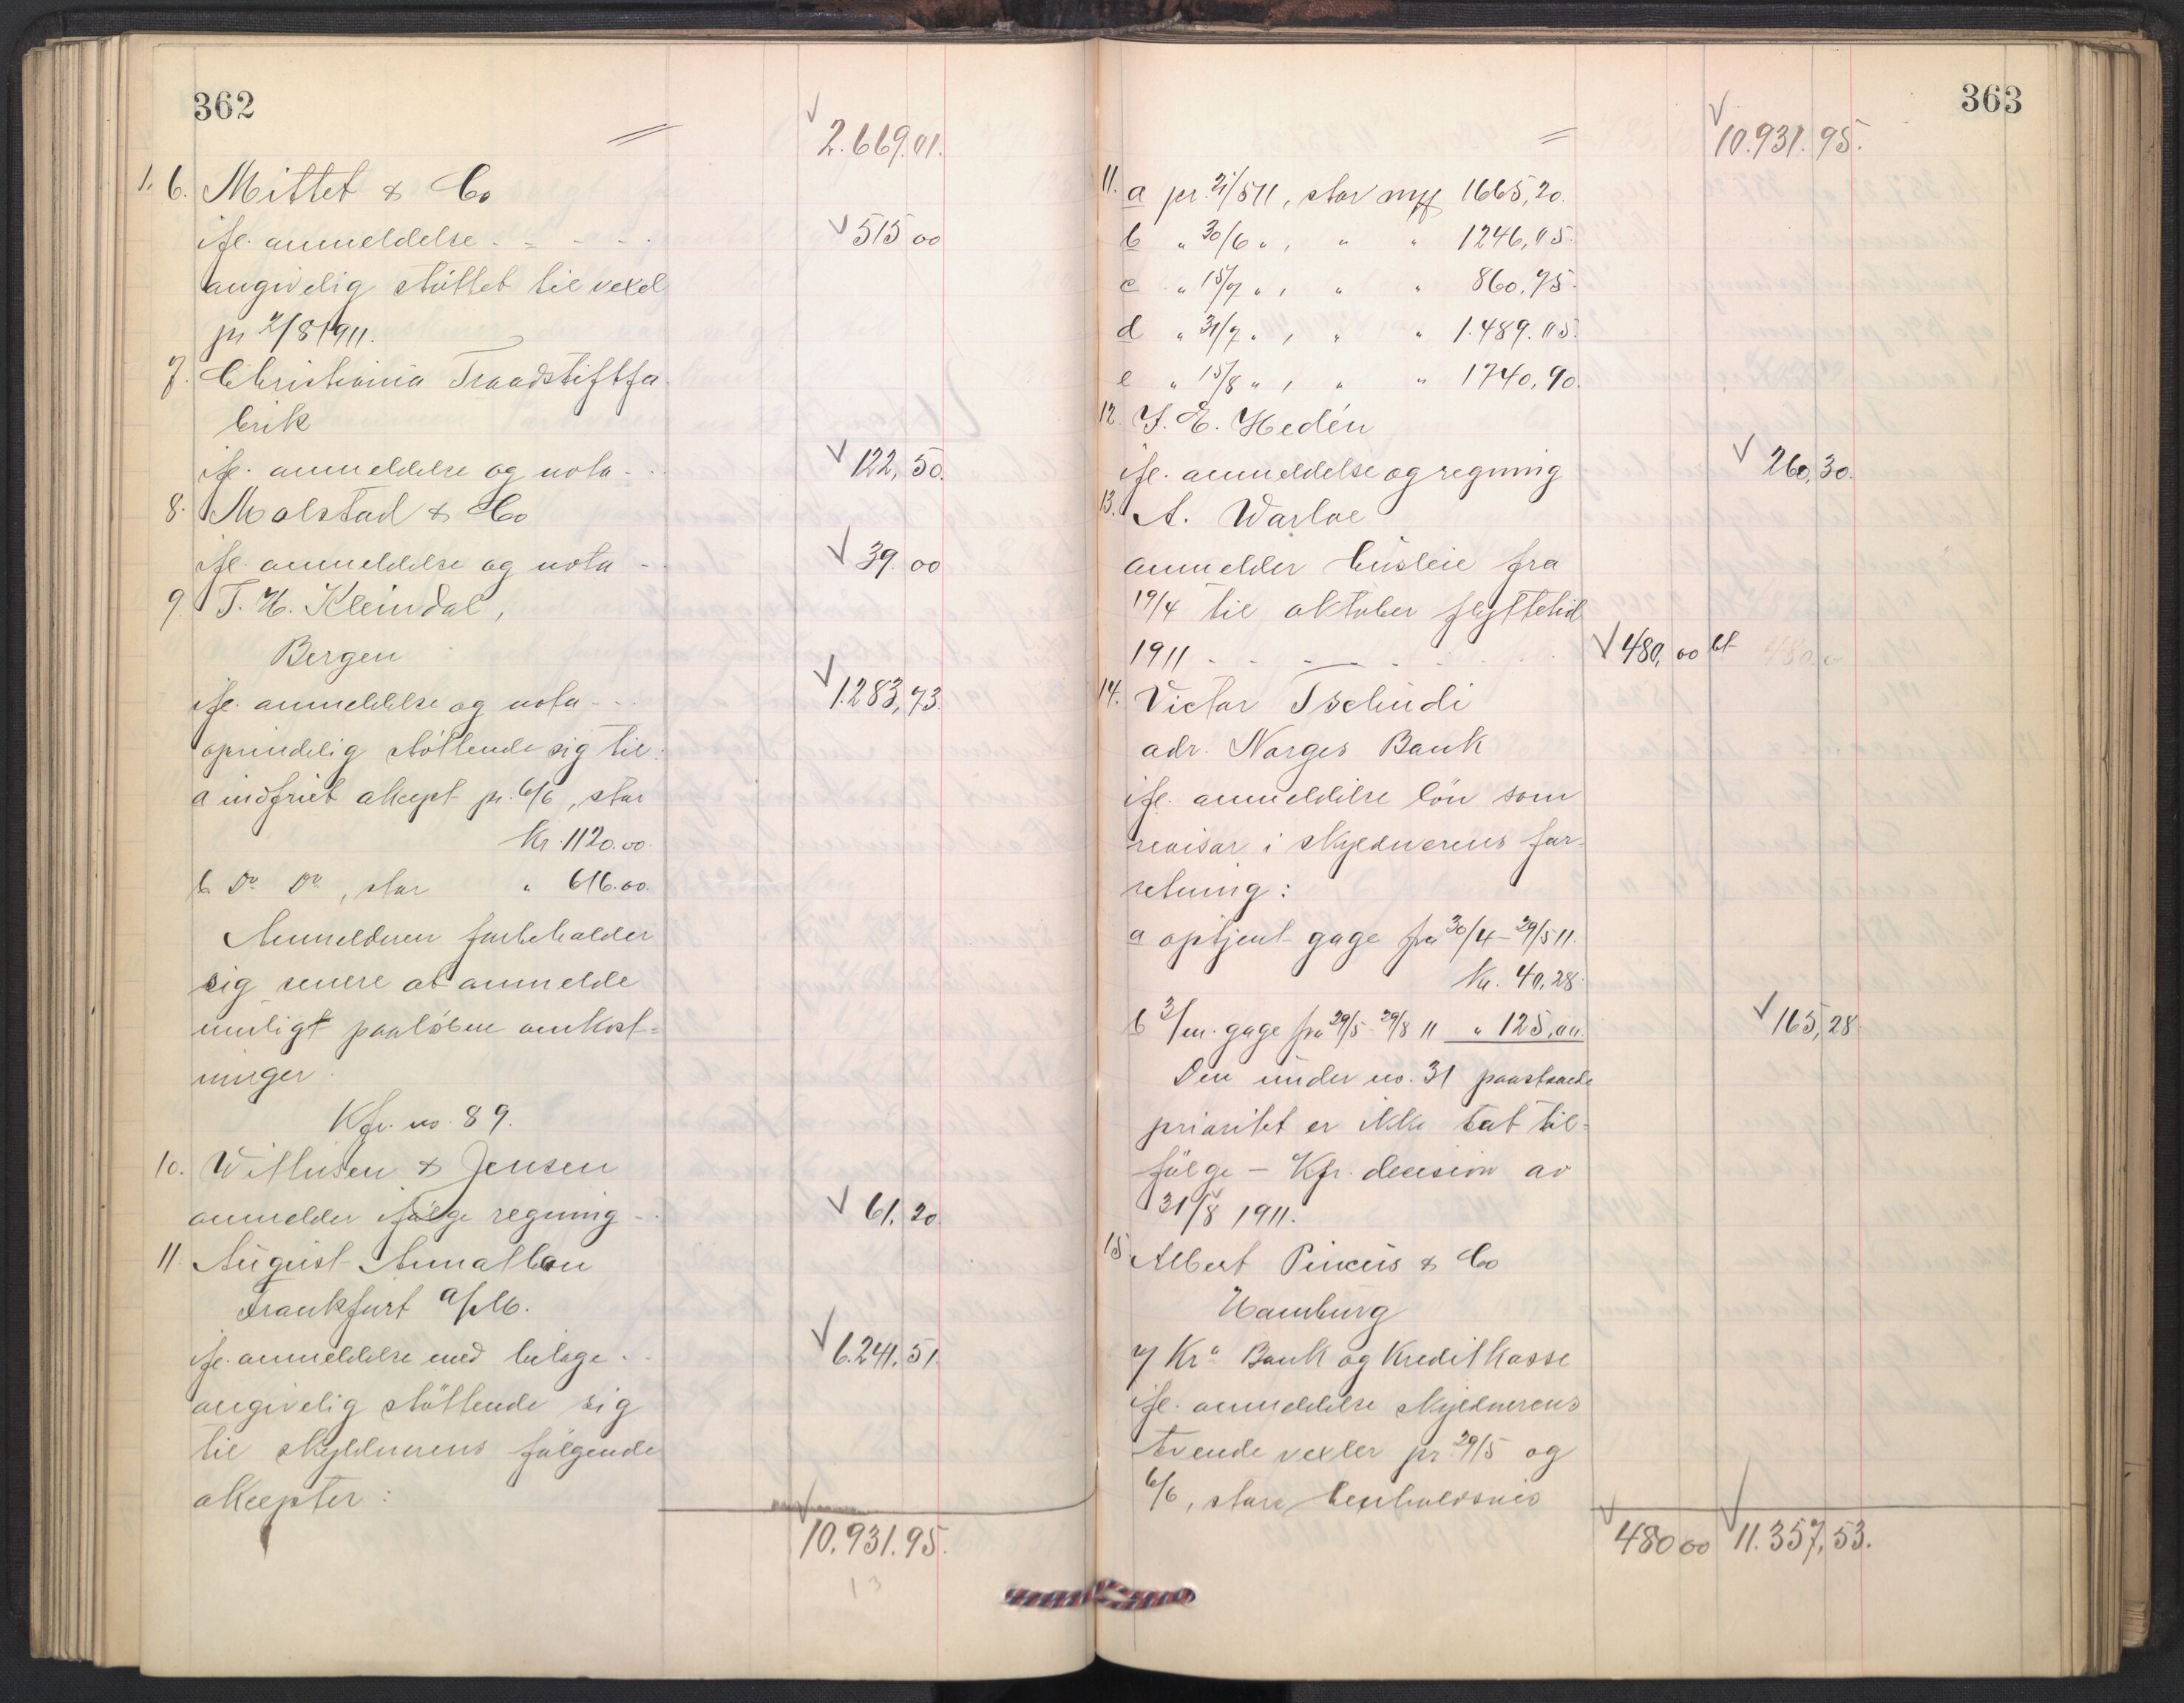 362
= 2.669.01.
1. 6. Mittet & Co
ifl. anmeldelse - - - - 515 00
angivelig støttet til vexel
pr 2/8 1911.
7. Christiania Traadstiftfa-
brik
ifl. anmeldelse og nota - - 122,50.
8. Molstad & Co
ifl. anmeldelse og nota - 39.00
9. T. H. Kleindal,
Bergen
ifl. anmeldelse og nota - - 1.283,73.
oprindelig støttende sig til:
a indfriet akcept pr. 6/6, stor
Kr. 1120.00.
b Do Do, stor " 616.00.
Anmelderen forbeholder
sig senere at anmelde
muligt paaløbne omkost=
ninger.
Kfr. no. 89.
10. Withusen & Jensen
anmelder ifølge regning - - 61,20.
11. August
Frankfurt a/M.
ifl. anmeldelse med bilage - - 6.241,51.
angivelig støttende sig
til skyldnerens følgende
akcepter:
10.931.95.
13
363
= 10.931.95.
11. a pr. 21/5 11, stor 1665,20.
b " 30/6 ", " " 1246,05.
c " 15/7 ", " " 860,75.
d " 31/7 ", " " 1.489.05.
e " 15/8 ", " " 1740,90.
12. J. E. Hedén
ifl. anmeldelse og regning 260,30.
13. A. Warloe
anmelder husleie fra
19/4 til oktober flyttetid
1911 - - - - - - 480,00 bt 480,00
14. Victor Tschudi
adr. Norges Bank
ifl. anmeldelse løn som
revisor i skyldnerens for-
retning:
a optjent gage fra 30/4 - 29/5 11.
Kr. 40,28.
b 3/m. gage fra 29/5 - 29/8 11 " 125,00. 165,28
Den under no. 31 paastaaede
prioritet er ikke tat til=
følge - Kfr. decision av
31/8 1911.
15. Albert Pincus & Co
Hamburg
v/ Kra Bank og Kreditkasse
ifl. anmeldelse skyldnerens
tvende vexler pr. 29/5 og
6/6, store henholdsvis
480 00 11.357,53.